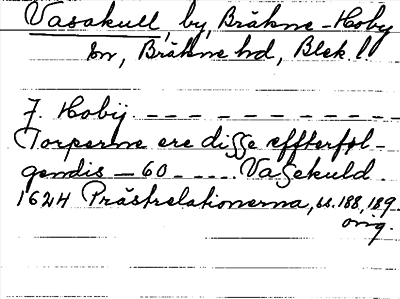 Vasakull, by, Bräkne-Hoby
sn, Bräkne hd, Blek l.
J Hobij - - - - - - - - -
Torperne ere disse effterføl-
gendis - 60 - - - - . Vasekuld.
1624 Prästrelationerna, ss. 188, 189.
orig.